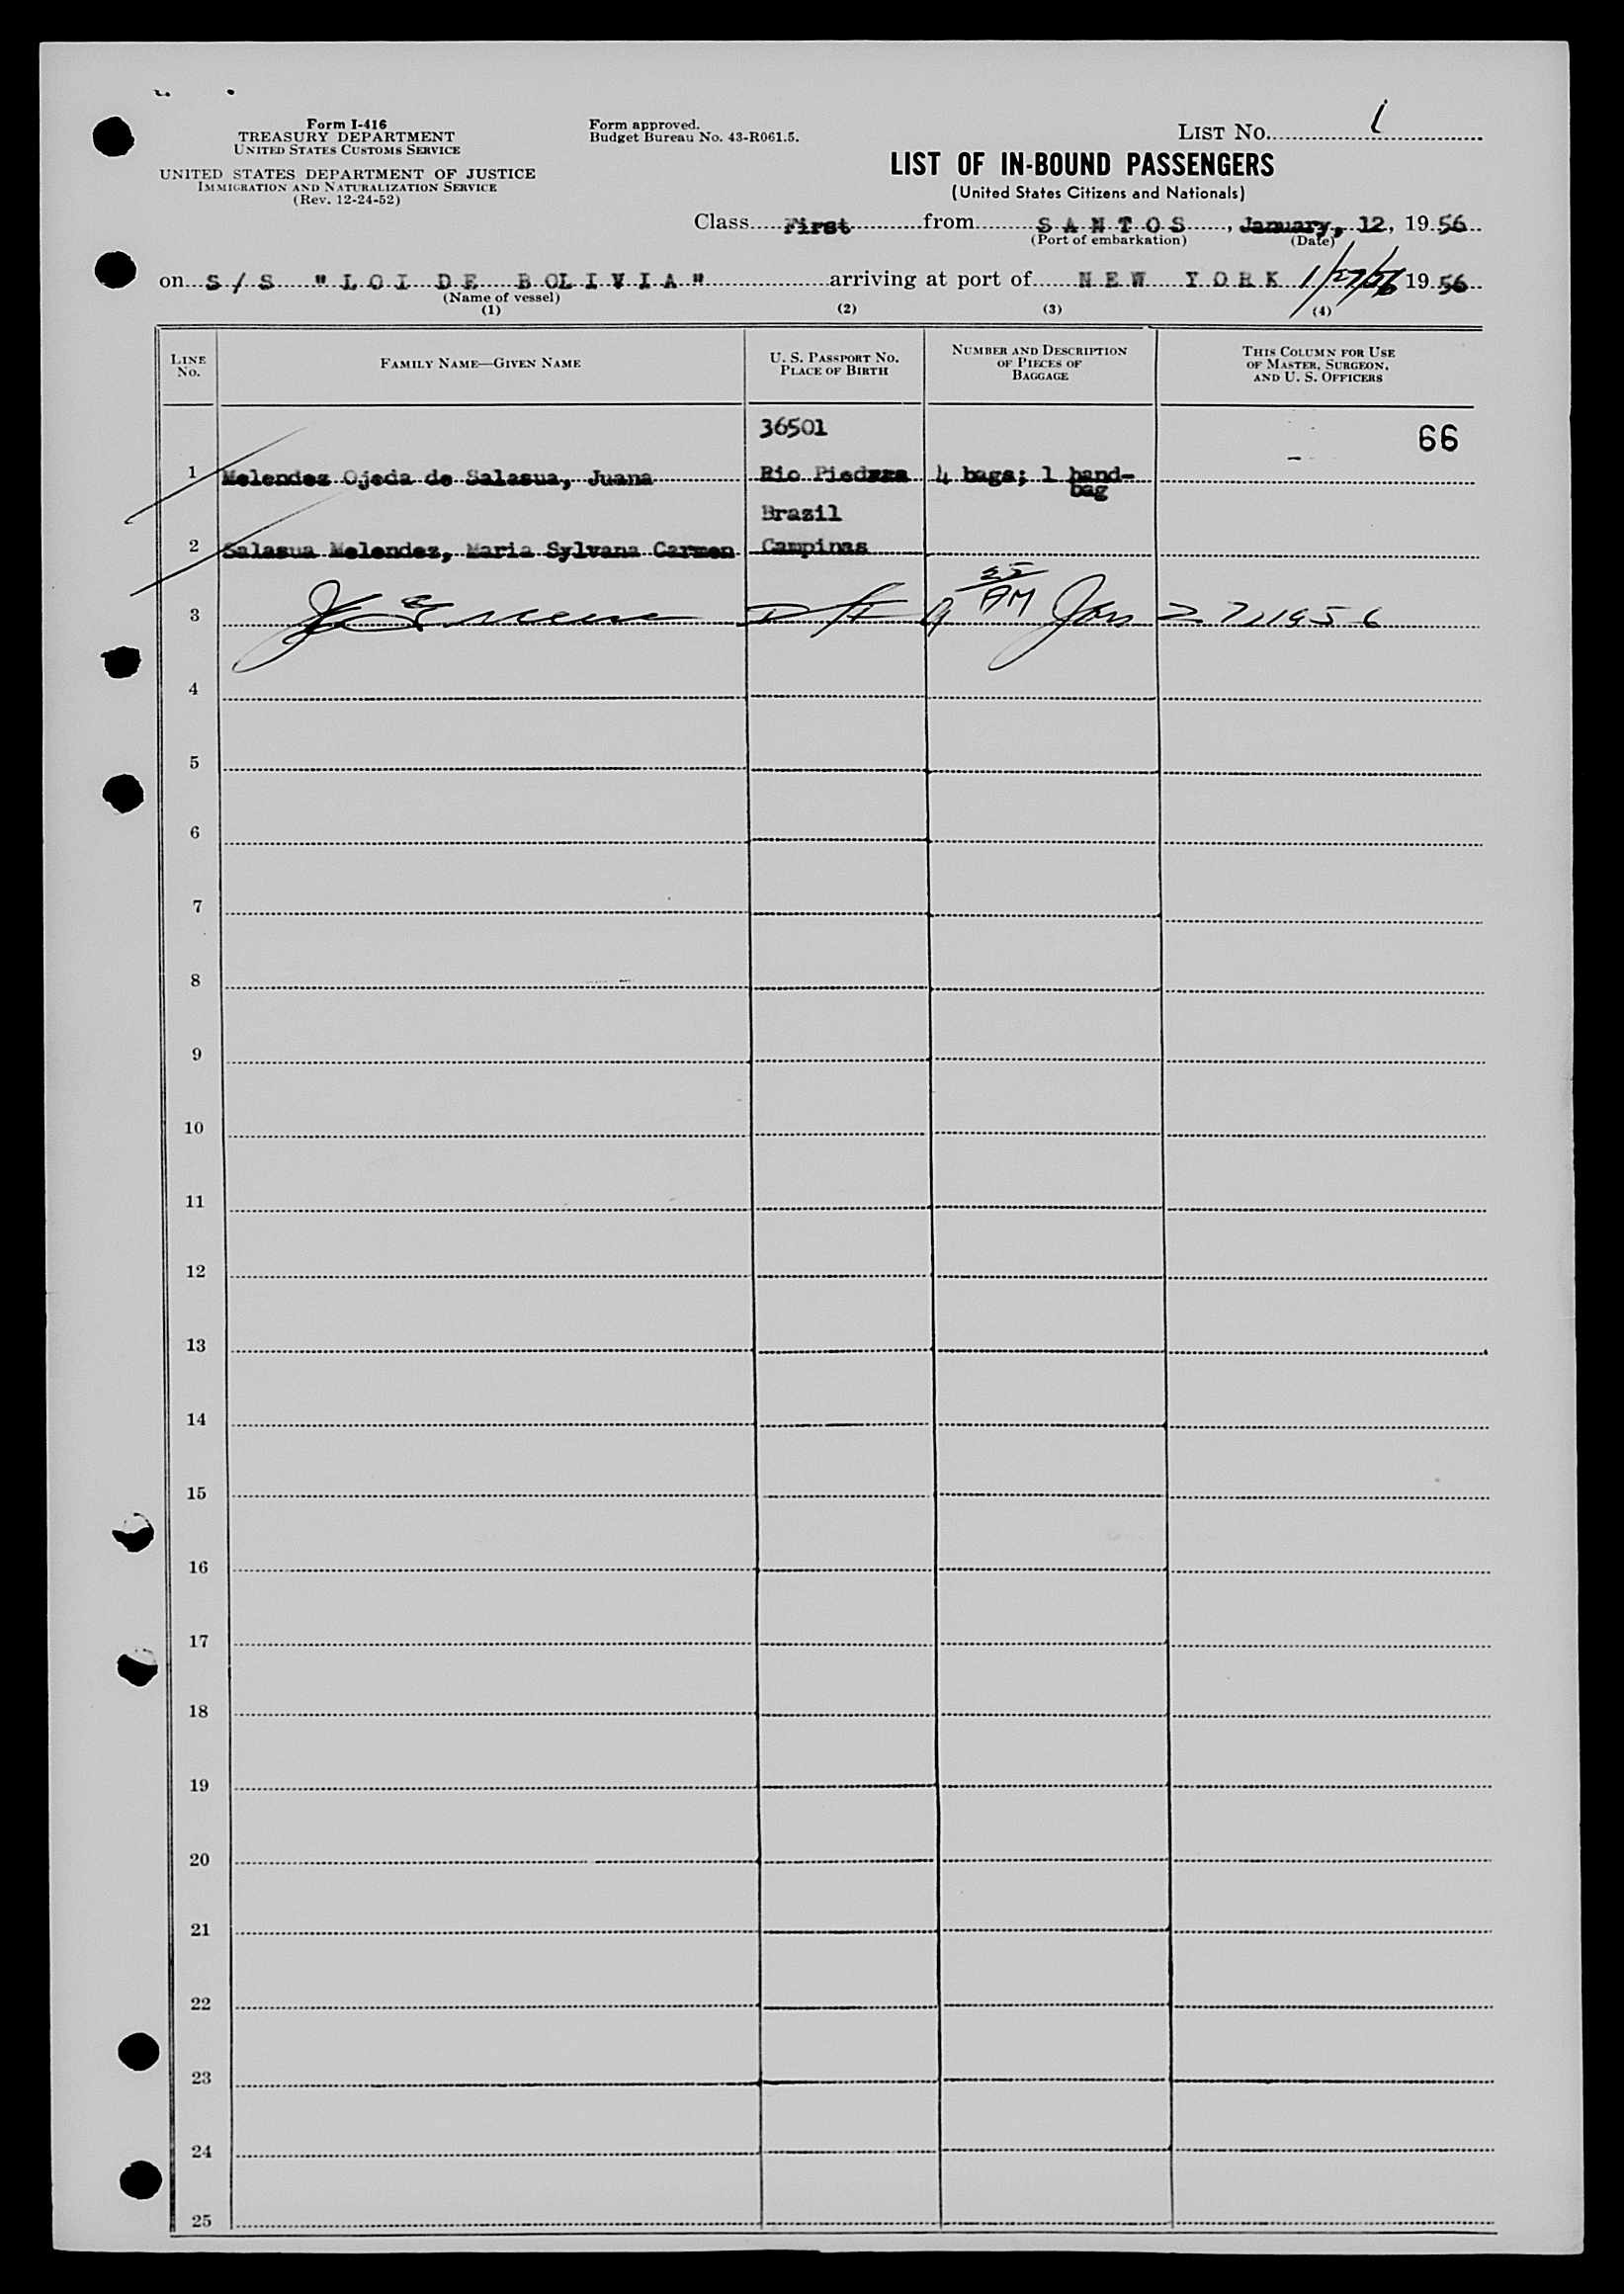 Form I-416
TREASURY DEPARTMENT
UNITED STATES CUSTOMS SERVICE
UNITED STATES DEPARTMENT OF JUSTICE
IMMIGRATION AND NATURALIZATION SERVICE
(Rev. 12-24-52)
Form approved.
Budget Bureau No. 43-R061.5.
LIST NO. 1
LIST OF IN-BOUND PASSENGERS
(United States Citizens and Nationals)
Class First from SANTOS, January, 12, 19 56
(Port of embarkation) (Date)
on S/S "LOIDE BOLIVIA" arriving at port of NEW YORK 1/27/56 19 56
(Name of vessel)
(1) (2) (3) (4)
LINE NO. FAMILY NAME—GIVEN NAME U. S. PASSPORT NO. PLACE OF BIRTH NUMBER AND DESCRIPTION OF PIECES OF BAGGAGE THIS COLUMN FOR USE OF MASTER, SURGEON, AND U. S. OFFICERS
36501 66
1 Melendez Ojeda de Salasua, Juana Rio Piedras 4 bags; 1 hand-
bag
Brazil
2 Salasua Melendez, Maria Sylvana Carmen Campinas
3 9 25 AM Jan 27, 1956
4
5
6
7
8
9
10
11
12
13
14
15
16
17
18
19
20
21
22
23
24
25